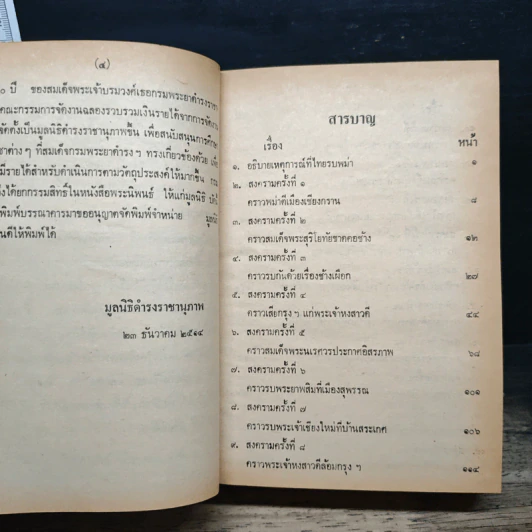 (๔)
๐ ปี ของสมเด็จพระเจ้าบรมวงศ์เธอกรมพระยาดำรงราชา
คณะกรรมการจัดงานฉลองรวบรวมเงินรายได้จากการจัดงาน
จัดตั้งเป็นมูลนิธิดำรงราชานุภาพขึ้น เพื่อสนับสนุนการศึกษา
ชาต่าง ๆ ที่สมเด็จกรมพระยาดำรงฯ ทรงเกี่ยวข้องด้วย
มีรายได้สำหรับดำเนินการตามวัตถุประสงค์ให้มากขึ้น
ได้ยกกรรมสิทธิ์ในหนังสือพระนิพนธ์ ให้แก่มูลนิธิ
พิมพ์บรรณาคารมาขออนุญาตจัดพิมพ์จำหน่าย มูลนิ
นดีให้พิมพ์ได้
มูลนิธิดำรงราชานุภาพ
๒๓ ธันวาคม ๒๕๑๔
สารบาญ
เรื่อง หน้า
๑. อธิบายเหตุการณ์ที่ไทยรบพม่า ๑
๒. สงครามครั้งที่ ๑
คราวพม่าตีเมืองเชียงกราน ๘
๓. สงครามครั้งที่ ๒
คราวสมเด็จพระสุริโยทัยขาดคอช้าง ๑๒
๔. สงครามครั้งที่ ๓
คราวรบกันด้วยเรื่องช้างเผือก ๒๗
๕. สงครามครั้งที่ ๔
คราวเสียกรุงฯ แก่พระเจ้าหงสาวดี ๔๔
๖. สงครามครั้งที่ ๕
คราวสมเด็จพระนเรศวรประกาศอิสรภาพ ๖๘
๗. สงครามครั้งที่ ๖
คราวรบพระยาพสิมที่เมืองสุพรรณ ๑๐๑
๘. สงครามครั้งที่ ๗
คราวรบพระเจ้าเชียงใหม่ที่บ้านสระเกศ ๑๐๖
๙. สงครามครั้งที่ ๘
คราวพระเจ้าหงสาวดีล้อมกรุง ฯ ๑๑๔